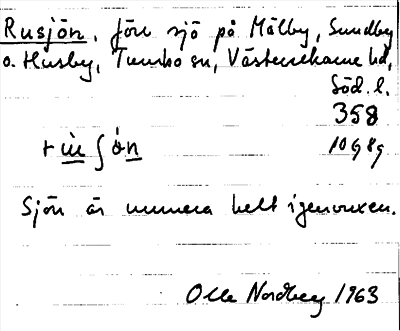 Rusjön, förr sjö på Mälby, Sundby
o. Husby, Tumbo sn, Västerrekarne hd,
Söd. l.
358
10G 8g
Sjön är numera helt igenvuxen.
Olle Nordberg 1963